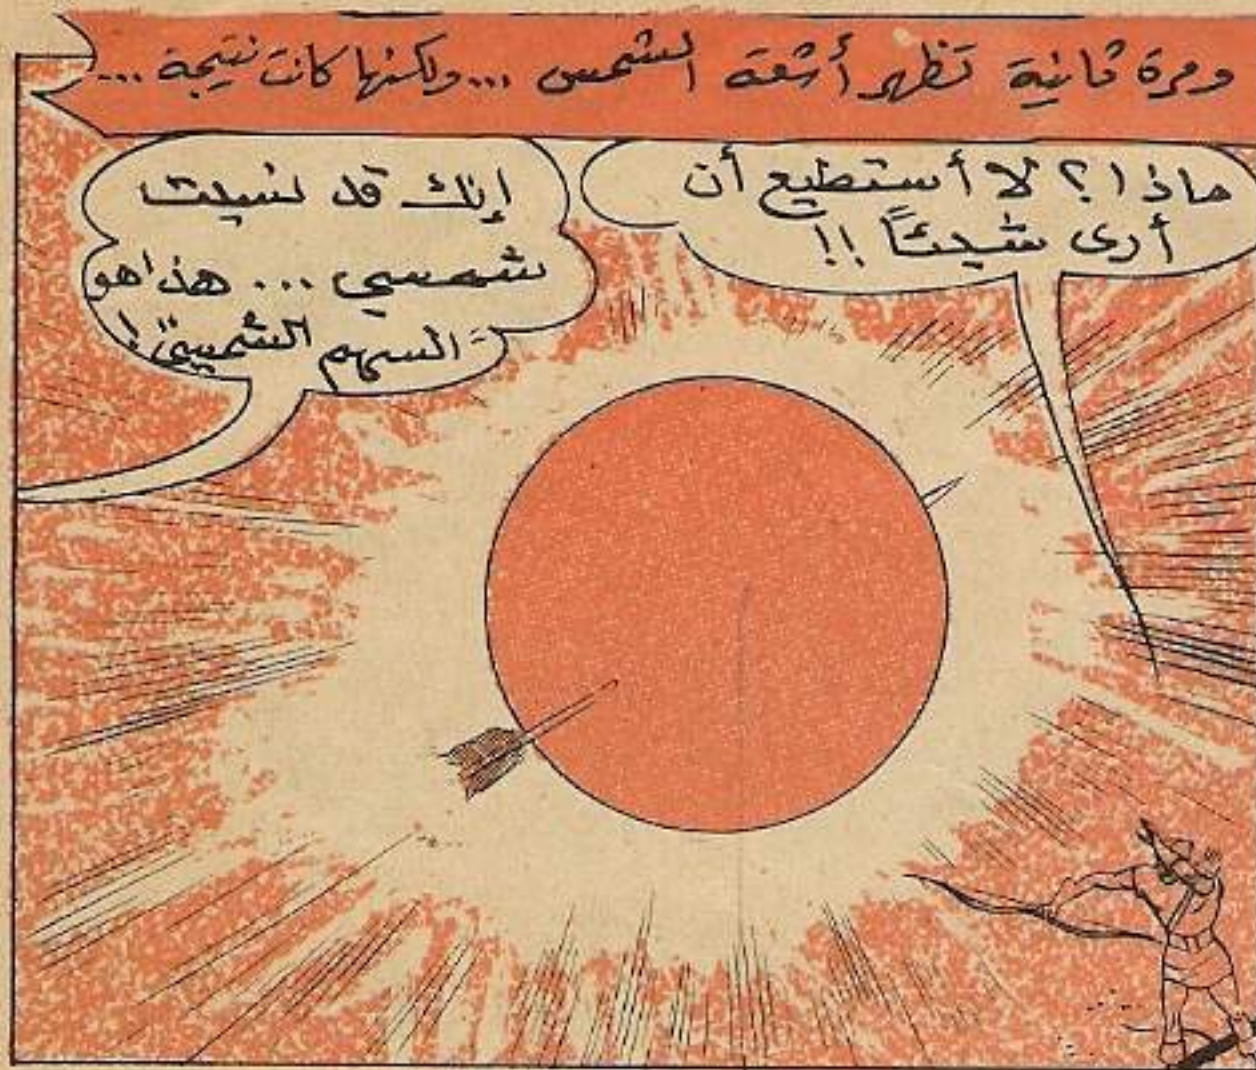 ومرة ثانية تظهر أشعة الشمس ... ولكنها كانت نتيجة ...
ماذا؟ لا أستطيع أن
أرى شيئاً !!
إنك قد نسيت
شمسي ... هذا هو
السهم الشمسيّ!